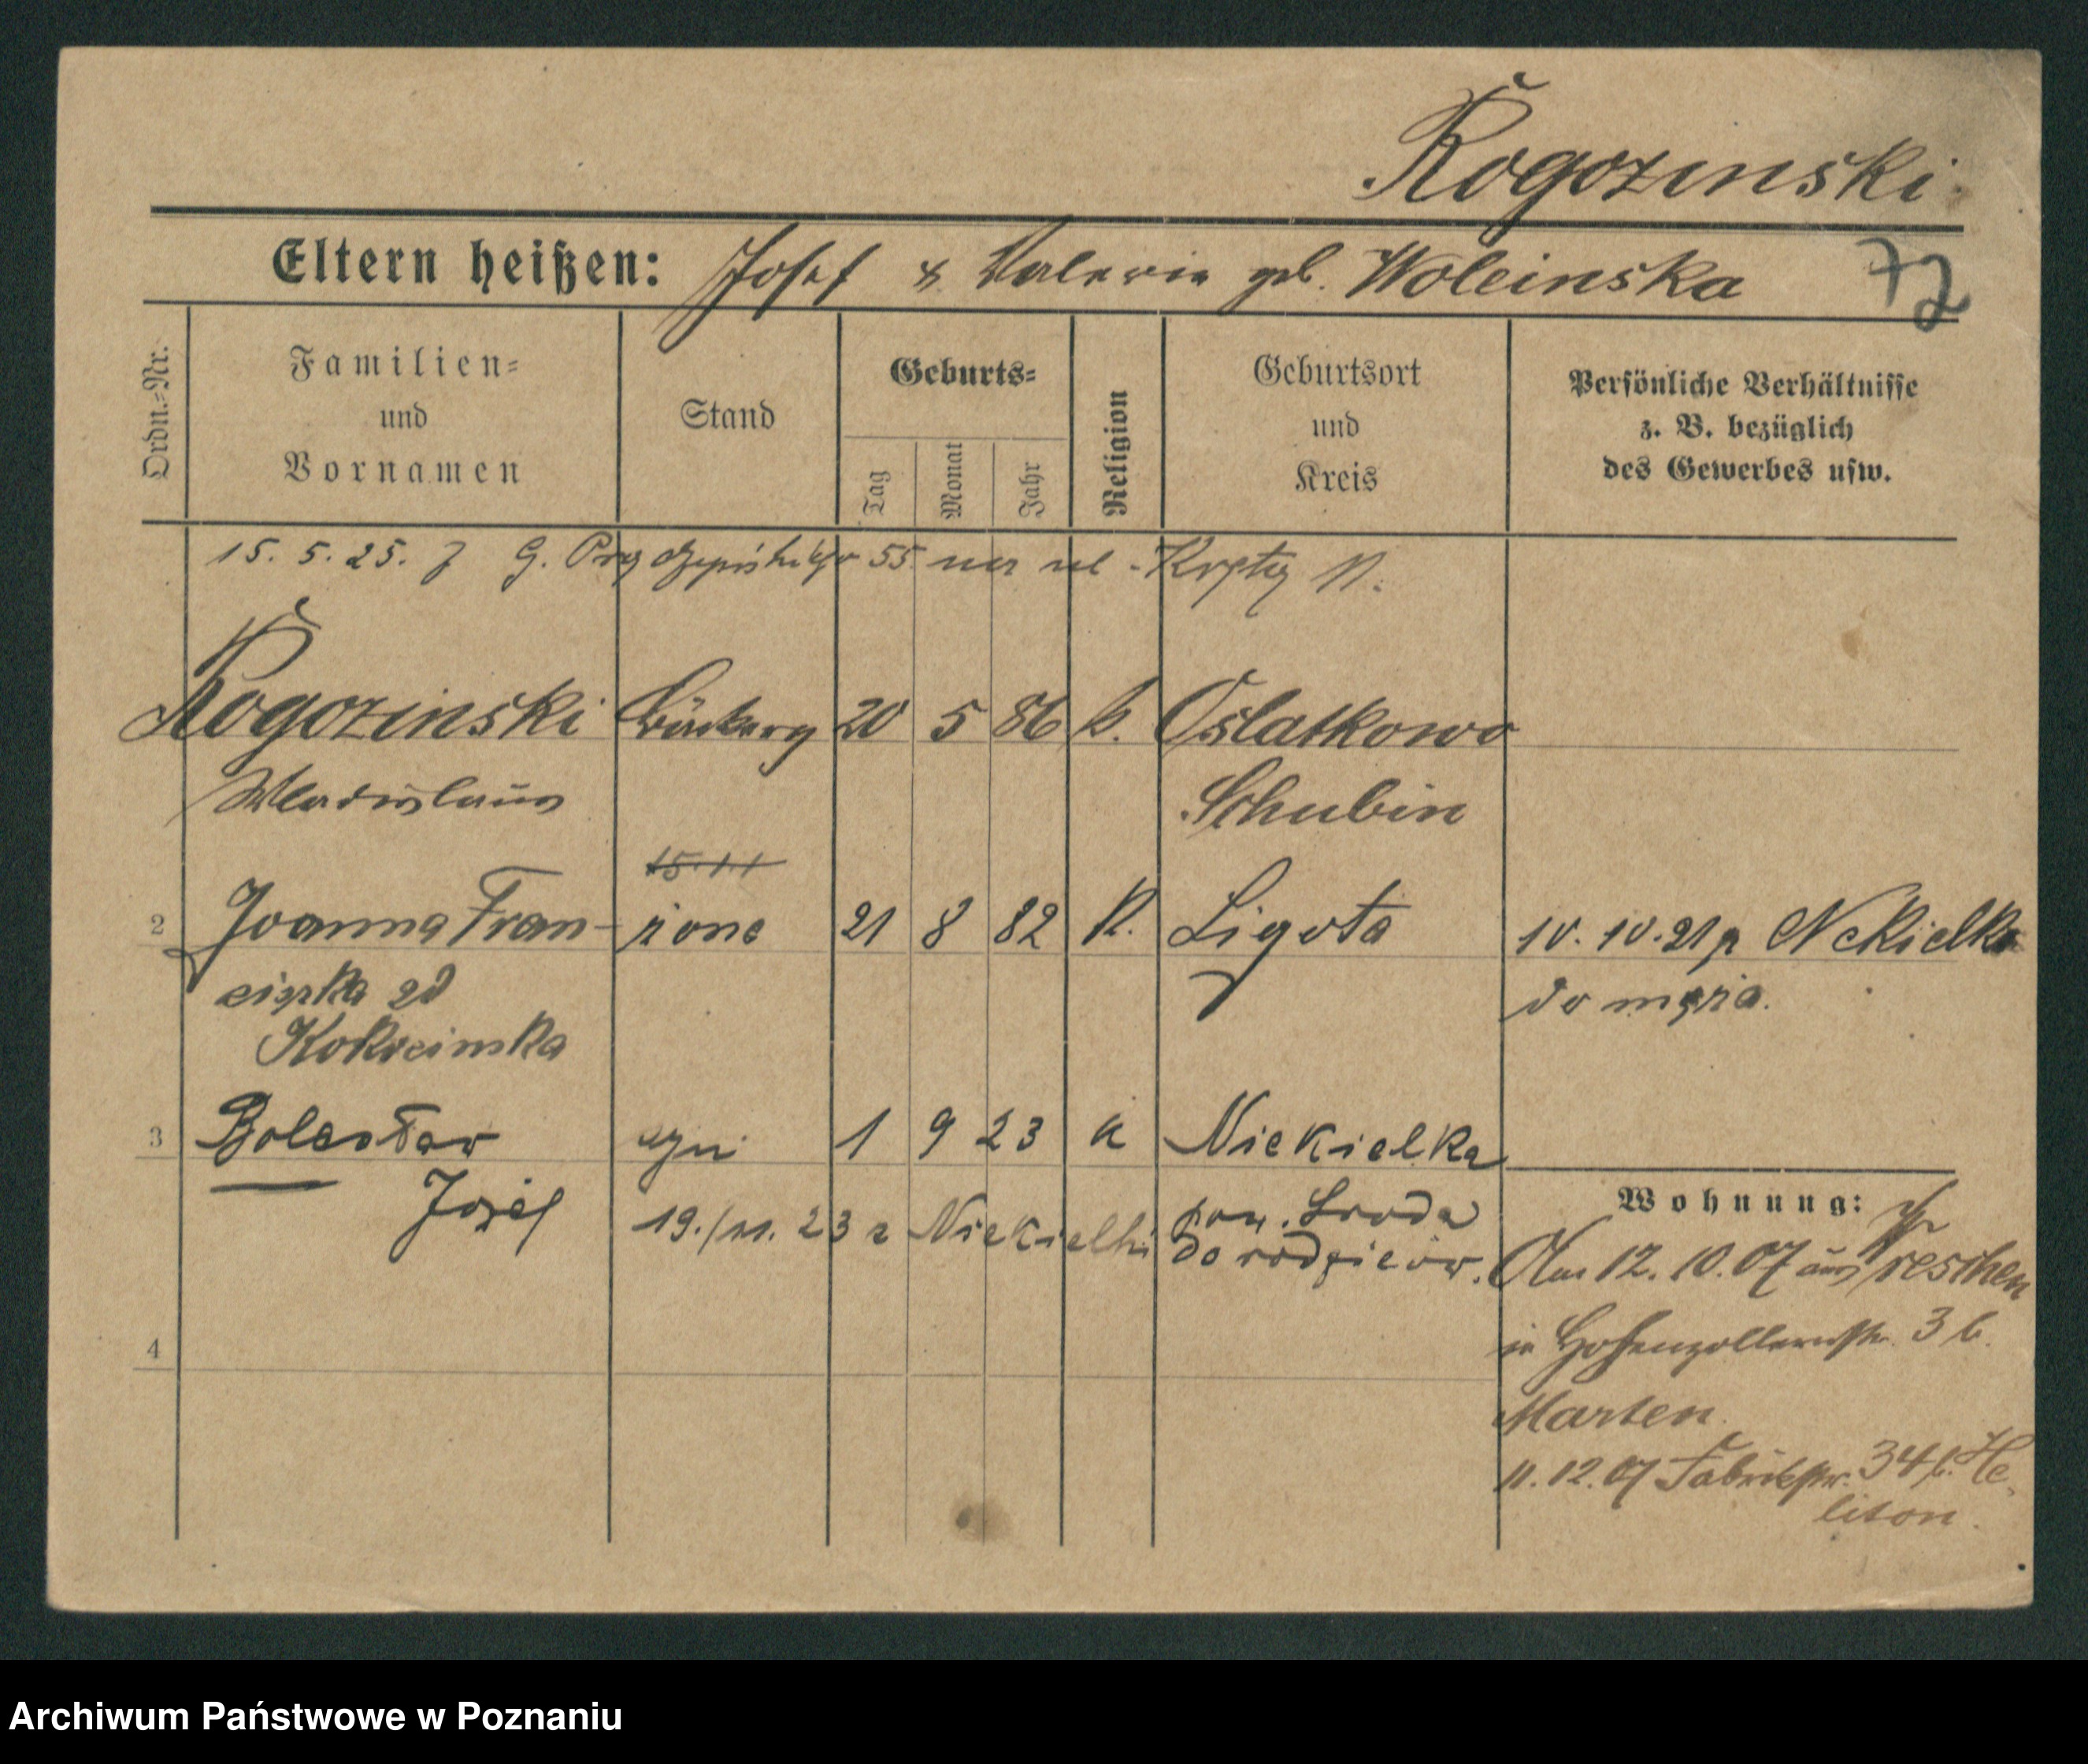 Rogozinski
Eltern heißen: Josef & Valeria geb. Woleinska
72
Ordn.-Nr.
Familien- und Vornamen
Stand
Geburts-
Tag
Monat
Jahr
Religion
Geburtsort und Kreis
Persönliche Verhältnisse z. B. bezüglich des Gewerbes usw.
15. 5. 25. G. 55
Rogozinski 20 5 86 k. Oslatkowo
Wladislaus Schubin
15.11
2 Joanna Fran- żona 21 8 82 K. Ligota 10. 10. 21 z Nekielka
ciszka do męża.
3 Bolesław syn 1 9 23 k Niekielka
Józef 19./11. 23 z Niekielki pow. Środa
do rodziców.
Wohnung:
Am 12. 10. 07 aus Wreschen
in Hohenzollernstr. 3 b.
Marten.
11. 12. 07 Fabrikstr. 34 b. He
liton.
4
Archiwum Państwowe w Poznaniu